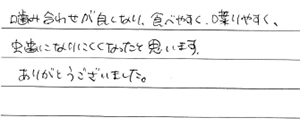 噛み合わせが良くなり、食べやすく、喋りやすく、
虫歯になりにくくなったと思います。
ありがとうございました。